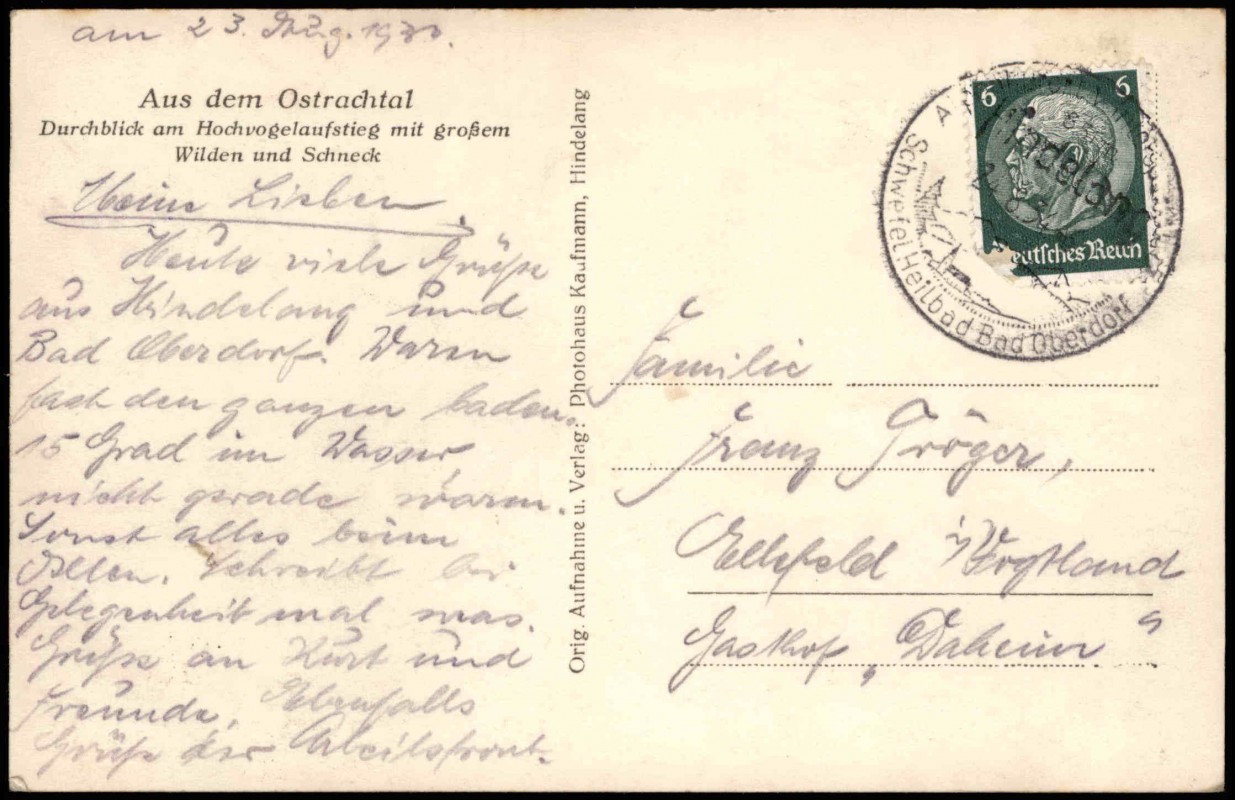 am 23. Aug. 193
Aus dem Ostrachtal
Durchblick am Hochvogelaufstieg mit großem
Wilden und Schneck
Meine Lieben.
Heute viele Grüße
aus Hindelang und
Bad Oberdorf. Waren
fast den ganzen baden.
15 Grad im Wasser,
nicht gerade warm.
Sonst alles beim
Alten. Schreibt bei
Gelegenheit mal was.
Grüße an Kurt und
Freunde. Ebenfalls
Grüße der Arbeitsfront.
Orig. Aufnahme u. Verlag: Photohaus Kaufmann, Hindelang
6 6
Deutsches Reich
Hindelang
Schwefel Heilbad Bad Oberdorf
Familie
Franz Tröger,
Ellefeld i/Vogtland
Gasthof „Daheim"